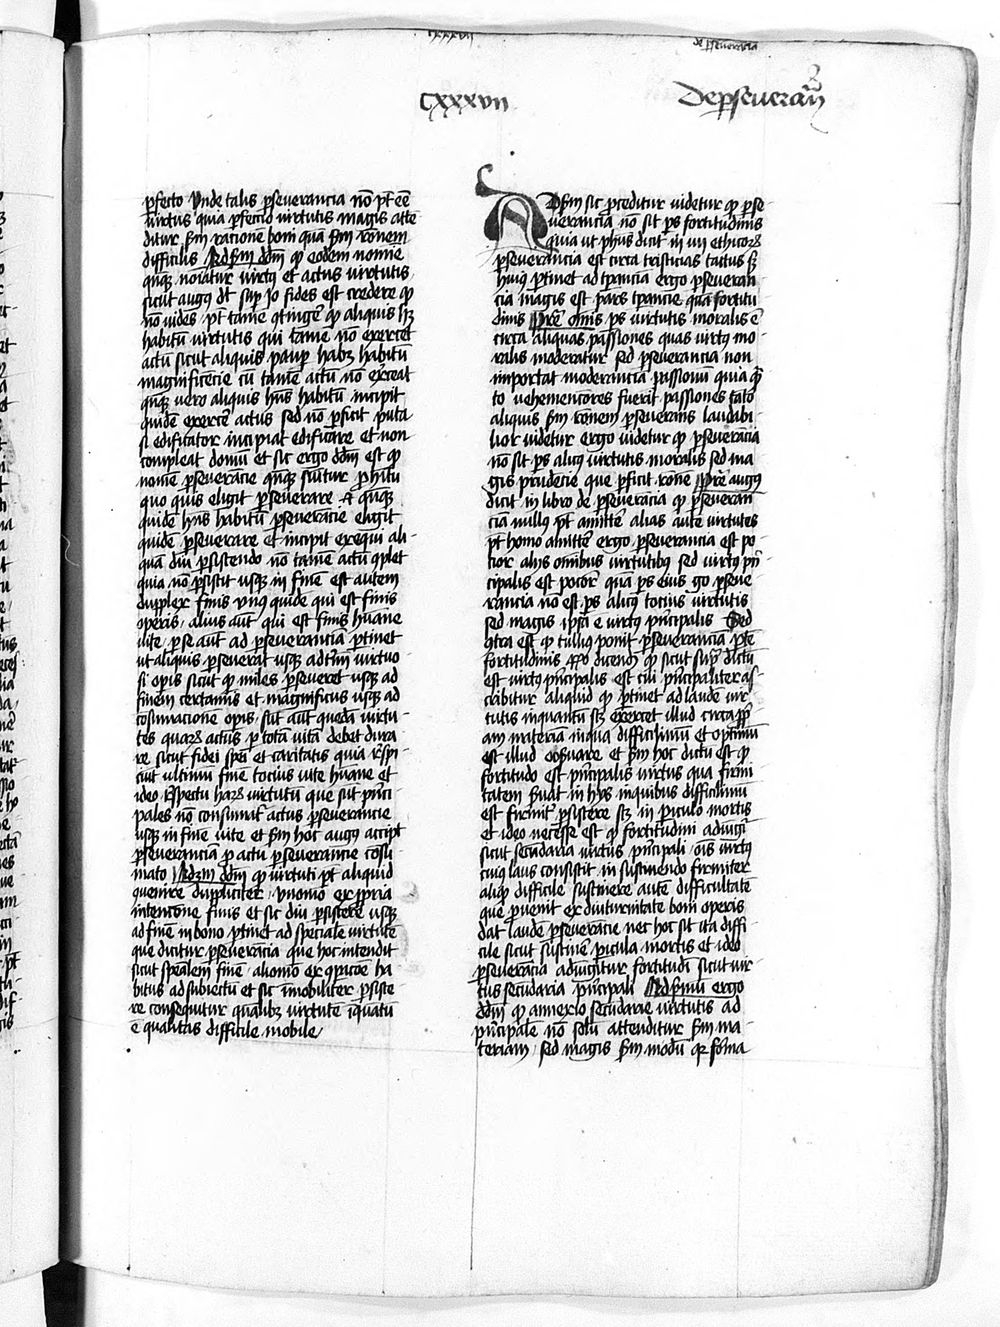 cxxxvii
de pseuerancia
cxxxvii
De pseueran
pfecto Unde talis pseuerancia nō pt eē
virtus quia pfectio virtutis magis atte
ditur sm racionē boni quā sm rōnem
difficilis Ad sm dōm q eodem nomine
qnqȝ noiatur virtꝰ et actus virtutis
sicut augꝰ dt sup Jo fides est credere qp
nō vides pt tamē qtinge qp aliquis hȝ
habitū virtutis qui tamē nō exercet
actū sicut aliquis paup habȝ habitū
magnificēcie cū tamē actū nō exceat
qnqȝ vero aliquis hñs habitū incipit
quidē exercē actus sed nō pficit puta
si edificator incipiat edificare et non
compleat domū et sic ergo dōm est qp
nomē pseuerācie qnqȝ sūitur p hitu
quo quis elugit pseuerare Et qnqȝ
quidē hñs habitū pseuerācie eligit
quidē pseuerare et incipit exequi ali
quā diu psistendo nō tamē actū qplet
quia nō psistit usqȝ in finē est autem
dupplex finis vnꝰ quidē qui est finis
operis alius aūt qui est finis hūane
uite p se aūt ad pseueranciā ptinet
ut aliquis pseuerat usqȝ ad tīm virtuo
si opis sicut qp miles pseueret usqȝ ad
finem certaminis et magnificus usqȝ ad
cosūmacionē opis sūt aūt quedā virtu
tes quarȝ actus p totā vitā debet dura
re sicut fidei spei et caritatis quia rspi
ciūt ultimū finē tocius uite hūane et
ideo rspectu harȝ virtutū que sūt pnci
pales nō consūmat actus pseuerancie
usqȝ in finē uite et sm hoc augꝰ accipit
pseueranciā p actu pseuerancie cosū
mato Ad ȝm dōm qp virtuti pt aliquid
quenire duppliciter vnomō ex ppria
intencione finis et sic diu psistere usqȝ
ad finē in bono ptinet ad specialē virtutē
que dicitur pseuerācia que hoc intendit
sicut spēalem finē aliomō ex qpicōe ha
bitus ad subiectū et sic imobiliter psiste
re consequitur qualibȝ virtutē iquatū
ē qualitas difficile mobile
Ad sm sic pceditur uidetur qp pse
uerancia nō sit ps fortitudinis
quia ut phūs dicit in vii ethicorȝ
pseuerancia est circa tristicias tactus sȝ
huiꝰ ptinet ad tpanciā ergo pseueran
cia magis est pars tpancie quā fortitu
dinis Pre omnis ps virtutis moralis ē
circa aliquas passiones quas virtꝰ mo
ralis moderatur sed pseuerancia non
importat moderanciā passionū quia qn
to vehementiores fuerit passiones tāto
aliquis sm rōnem pseuerans laudabi
lior videtur ergo videtur qp pseuerācia
nō sit ps alicꝰ virtutis moralis sed ma
gis prudēcie que pficit rōnē Pre augꝰ
dicit in libro de pseuerācia qp pseueran
ciā nullꝰ pt amittē alias aute virtutes
pt homo amittē ergo pseuerancia est po
tior aliis omnibus virtutibꝰ sed virtꝰ pn
cipalis est pocior quā ps eius go pseue
rancia nō est ps alicꝰ tocius virtutis
sed magis ipsa e virtꝰ pncipalis Sed
qtra est qp tullius ponit pseuerancia ptē
fortitudinis
est virtꝰ pncipalis est cui pncipaliter as
cribitur aliquid qp ptinet ad laudē vir
tutis inquantū scȝ exercet illud circa pp
am materiā in qua difficilimū et optimū
est illud obsuare et sm hoc dictū est qp
fortitudo est pncipalis virtus quia firmi
tatem suat in hys in quibus difficilimū
est firmit psistere scȝ in piculo mortis
et ideo necesse est qp fortitudini adiugi
sicut secūdaria virtus pncipali ois virtꝰ
cuiꝰ laus consistit in sustinendo firmiter
aliqp difficile sustinere autē difficultatē
que puenit ex diuturnitate boni operis
dat laudē pseuerācie nec hoc sit ita diffi
cile sicut sustinē picula mortis et ideo
pseuerācia adiūgitur fortitudi sicut vir
tus secūdaria pncipali Ad pmū ergo
dōm qp annexio secūdarie virtutis ad
pncipalē nō solū attenditur sm ma
teriam sed magis sm modū qr forma